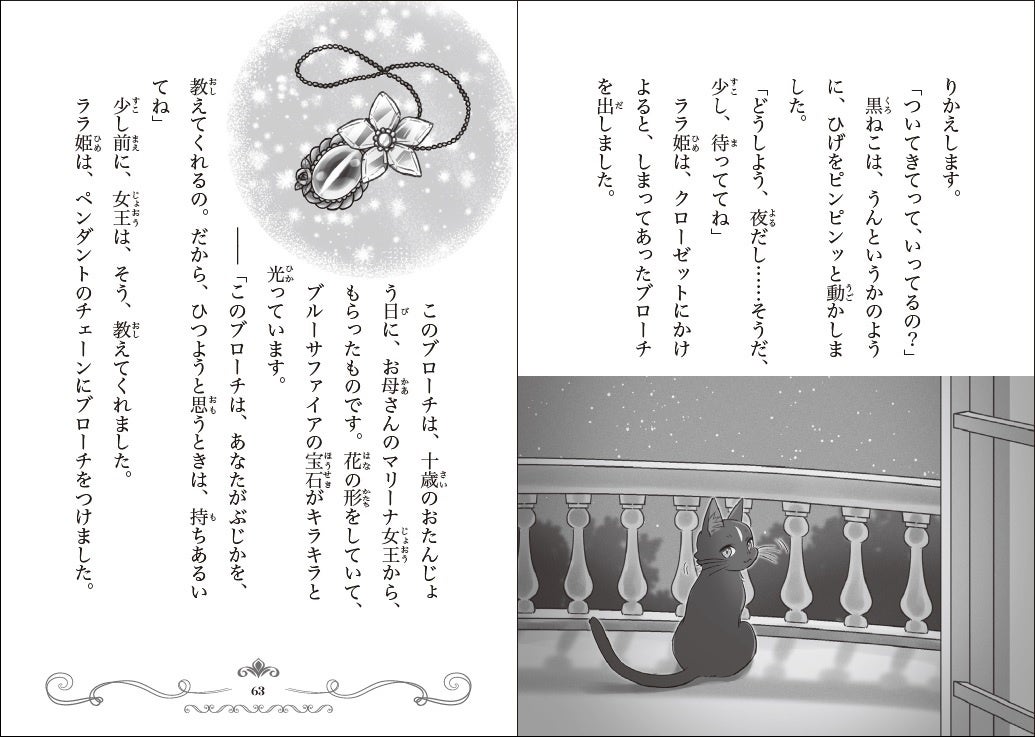 りかえします。
「ついてきてって、いってるの？」
黒ねこは、うんというかのよう
に、ひげをピンピンッと動かしま
した。
「どうしよう、夜だし……そうだ、
少し、待っててね」
ララ姫は、クローゼットにかけ
よると、しまってあったブローチ
を出しました。
このブローチは、十歳のおたんじょ
う日に、お母さんのマリーナ女王から、
もらったものです。花の形をしていて、
ブルーサファイアの宝石がキラキラと
光っています。
――「このブローチは、あなたがぶじかを、
教えてくれるの。だから、ひつようと思うときは、持ちあるい
てね」
少し前に、女王は、そう、教えてくれました。
ララ姫は、ペンダントのチェーンにブローチをつけました。
63